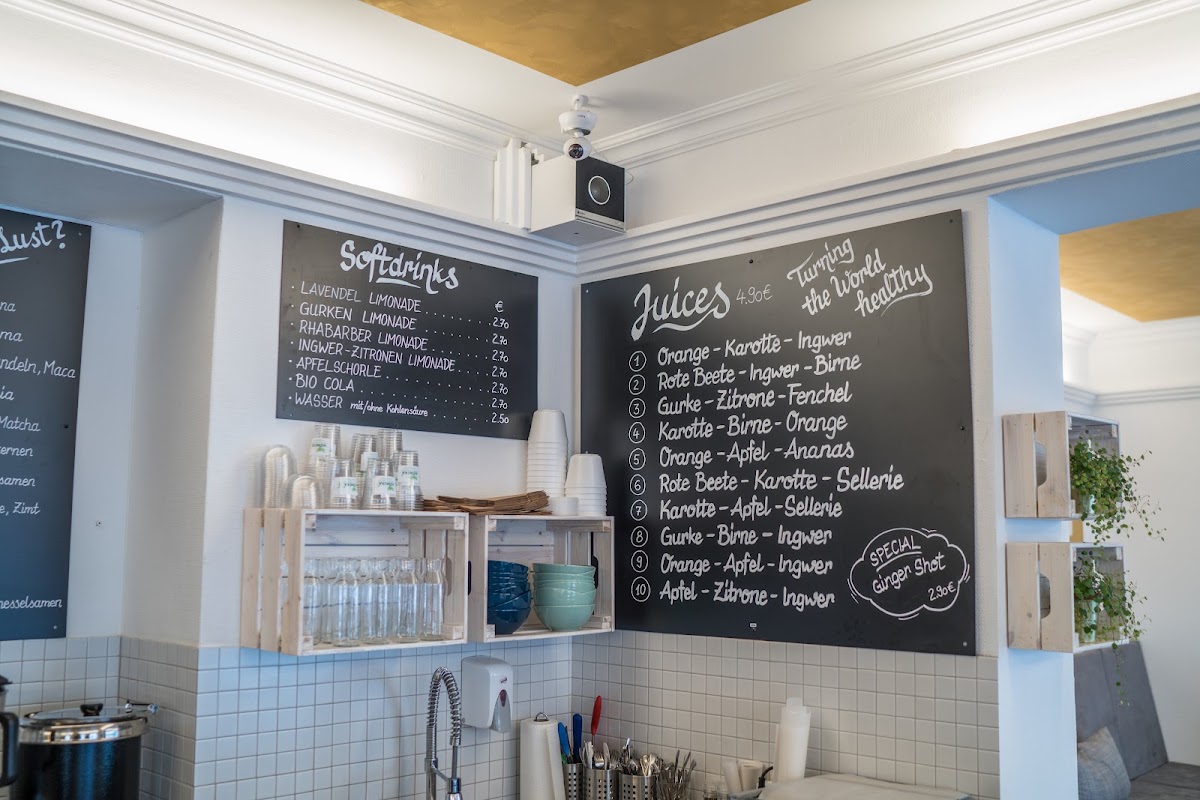 Lust?
Maca
Matcha
Zimt
Softdrinks
€
· LAVENDEL LIMONADE . . . . . . . . 2.70
· GURKEN LIMONADE . . . . . . . . 2.70
· RHABARBER LIMONADE . . . . . . . . 2.70
· INGWER-ZITRONEN LIMONADE . . . . 2.70
· APFELSCHORLE . . . . . . . . . . . . 2.70
· BIO COLA . . . . . . . . . . . . . . 2.70
· WASSER mit/ohne Kohlensäure 2.50
Juices 4.90€
Turning
the World
healthy
1 Orange - Karotte - Ingwer
2 Rote Beete - Ingwer - Birne
3 Gurke - Zitrone - Fenchel
4 Karotte - Birne - Orange
5 Orange - Apfel - Ananas
6 Rote Beete - Karotte - Sellerie
7 Karotte - Apfel - Sellerie
8 Gurke - Birne - Ingwer
9 Orange - Apfel - Ingwer
10 Apfel - Zitrone - Ingwer
SPECIAL
Ginger Shot
2.90€